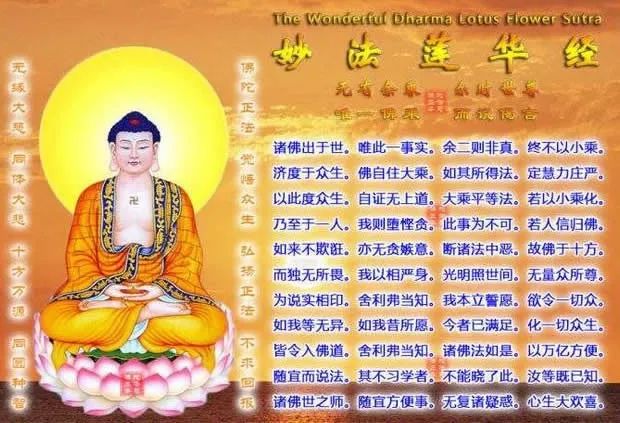 The Wonderful Dharma Lotus Flower Sutra
妙法莲华经
无有余乘 尔时世尊
唯一佛乘 而说偈言
无缘大慈 同体大悲 十方万源 同圆种智
佛陀正法 觉悟众生 弘扬正法 不求回报
诸佛出于世。唯此一事实。余二则非真。终不以小乘。
济度于众生。佛自住大乘。如其所得法。定慧力庄严。
以此度众生。自证无上道。大乘平等法。若以小乘化。
乃至于一人。我则堕悭贪。此事为不可。若人信归佛。
如来不欺诳。亦无贪嫉意。断诸法中恶。故佛于十方。
而独无所畏。我以相严身。光明照世间。无量众所尊。
为说实相印。舍利弗当知。我本立誓愿。欲令一切众。
如我等无异。如我昔所愿。今者已满足。化一切众生。
皆令入佛道。舍利弗当知。诸佛法如是。以万亿方便。
随宜而说法。其不习学者。不能晓了此。汝等既已知。
诸佛世之师。随宜方便事。无复诸疑惑。心生大欢喜。